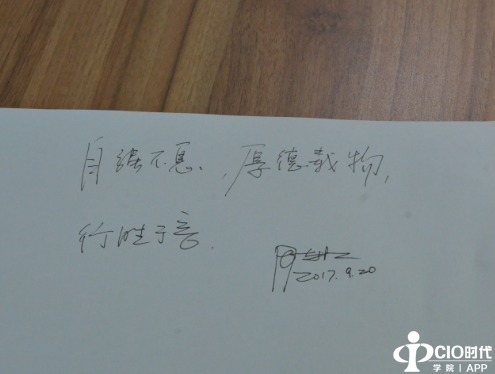 自强不息、厚德载物,
行胜于言.
2017.9.20
CIO时代
学院|APP